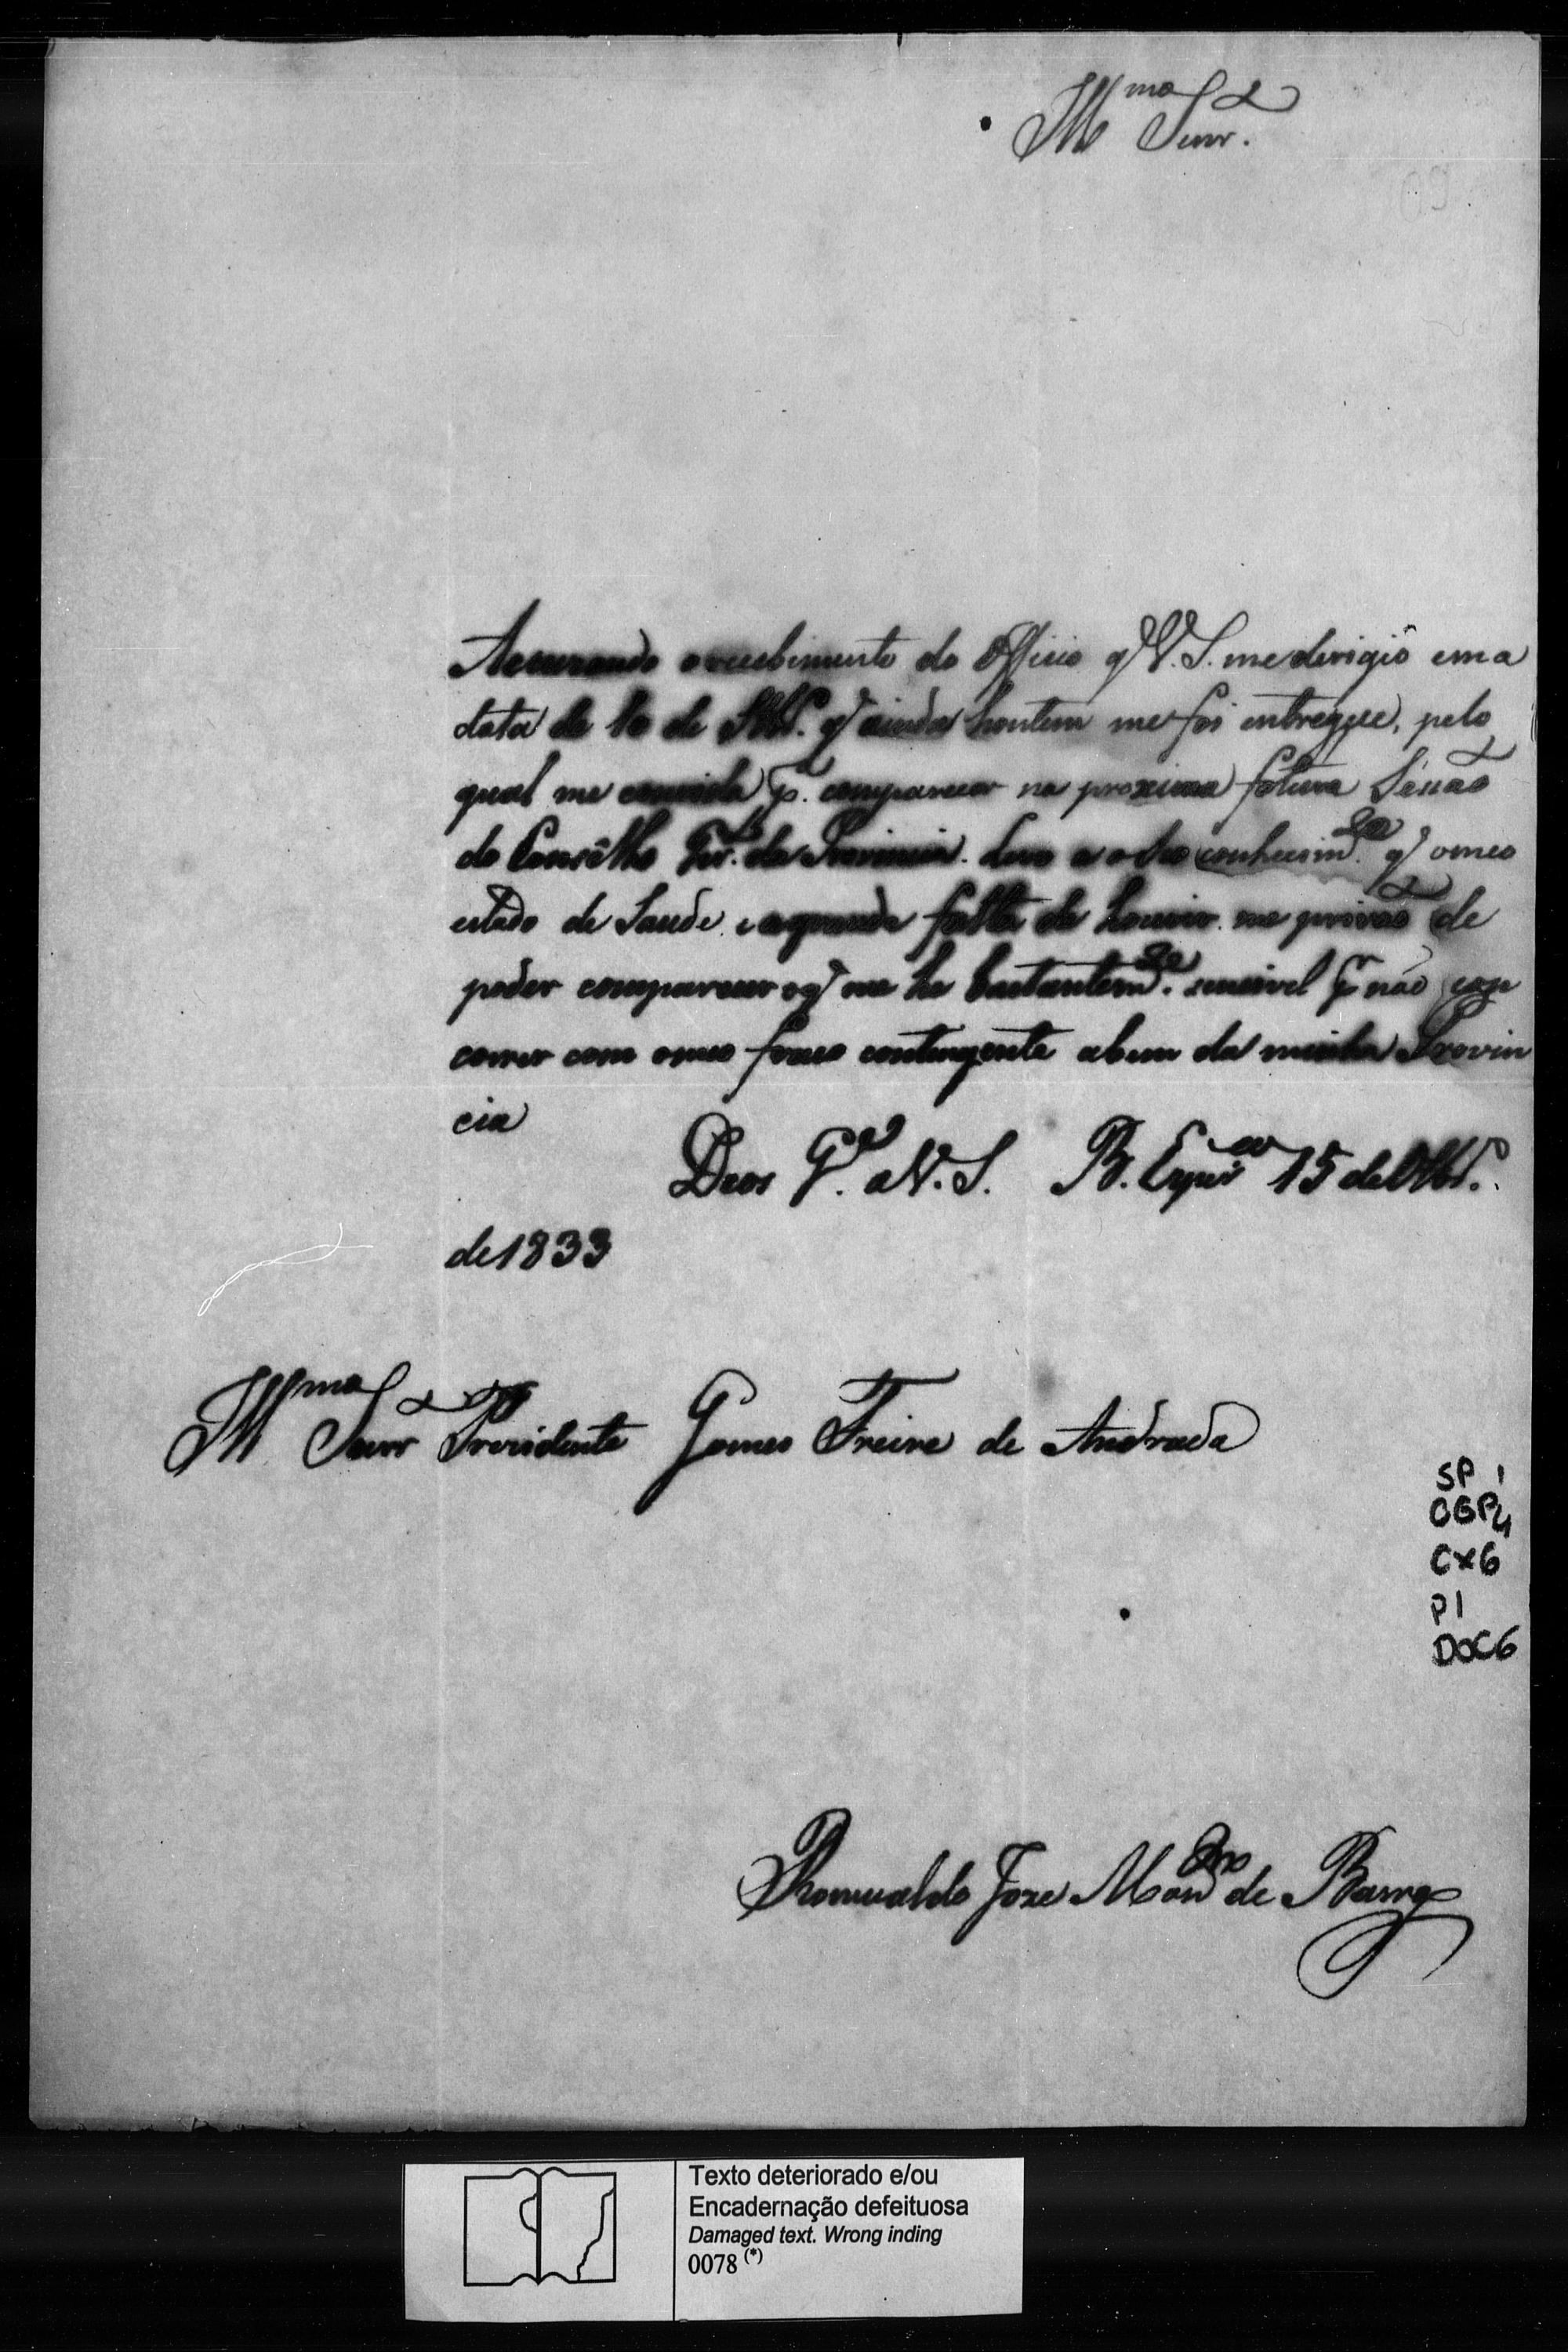 Illmo Senr.
Accuzando o recebimento do Officio q' V. S. me derigio em a
data de 10 de q' ainda hontem me foi entregue, pelo
qual me convida pa. comparecer na proxima fotura Sessão
do Consêlho Ger.al da Provincia. Levo a o seo conhecimto. q' o meo
estado de Saude, e a grande falta de houvir me privão de
poder comparecer o q' me he bastantemte. sencivel pr. não con
correr com o meo fraco contengente a bem da minha Provin
cia
Deos Gde. a V. S. B. 15 de 8br.º
de 1833
Illmo Senr Prezidente Gomes Freire de Andrada
SP 1
CGP4
CX6
P1
DOC6
Romualdo Joze Montro de Barros
Texto deteriorado e/ou
Encadernação defeituosa
Damaged text. Wrong inding
0078 (*)